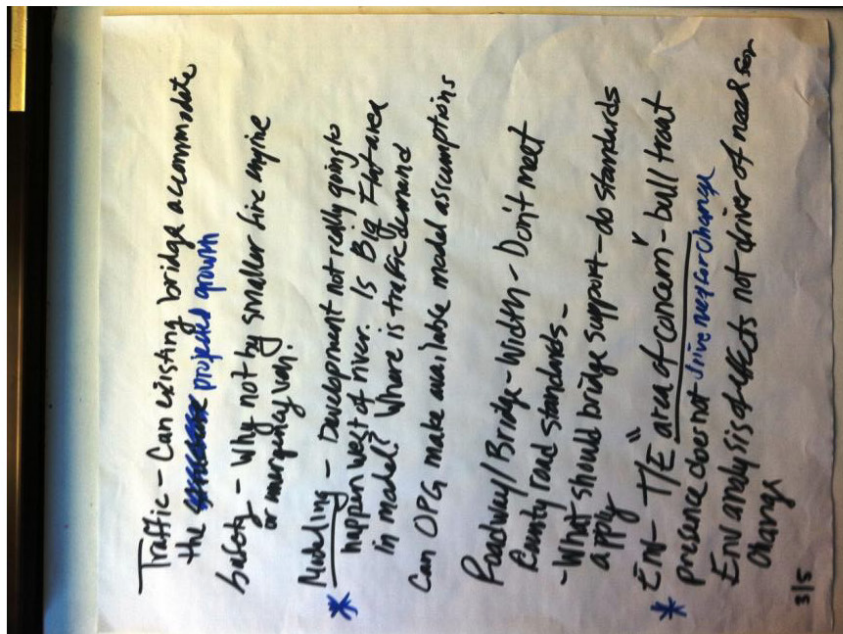 Traffic - Can existing bridge accommodate
the projected growth
Safety - Why not by smaller fire engine
or emergency van.
* Modeling - Development not really going to
happen west of river. Is Big Flat area
in model? Where is traffic demand
Can OPG make available model assumptions
Roadway/Bridge - Width - Don't meet
County road standards -
- What should bridge support - do standards
apply
Env - T/E "area of concern" - bull trout
* presence does not drive need for change
Env analysis of effects not driver of need for
change
3/5